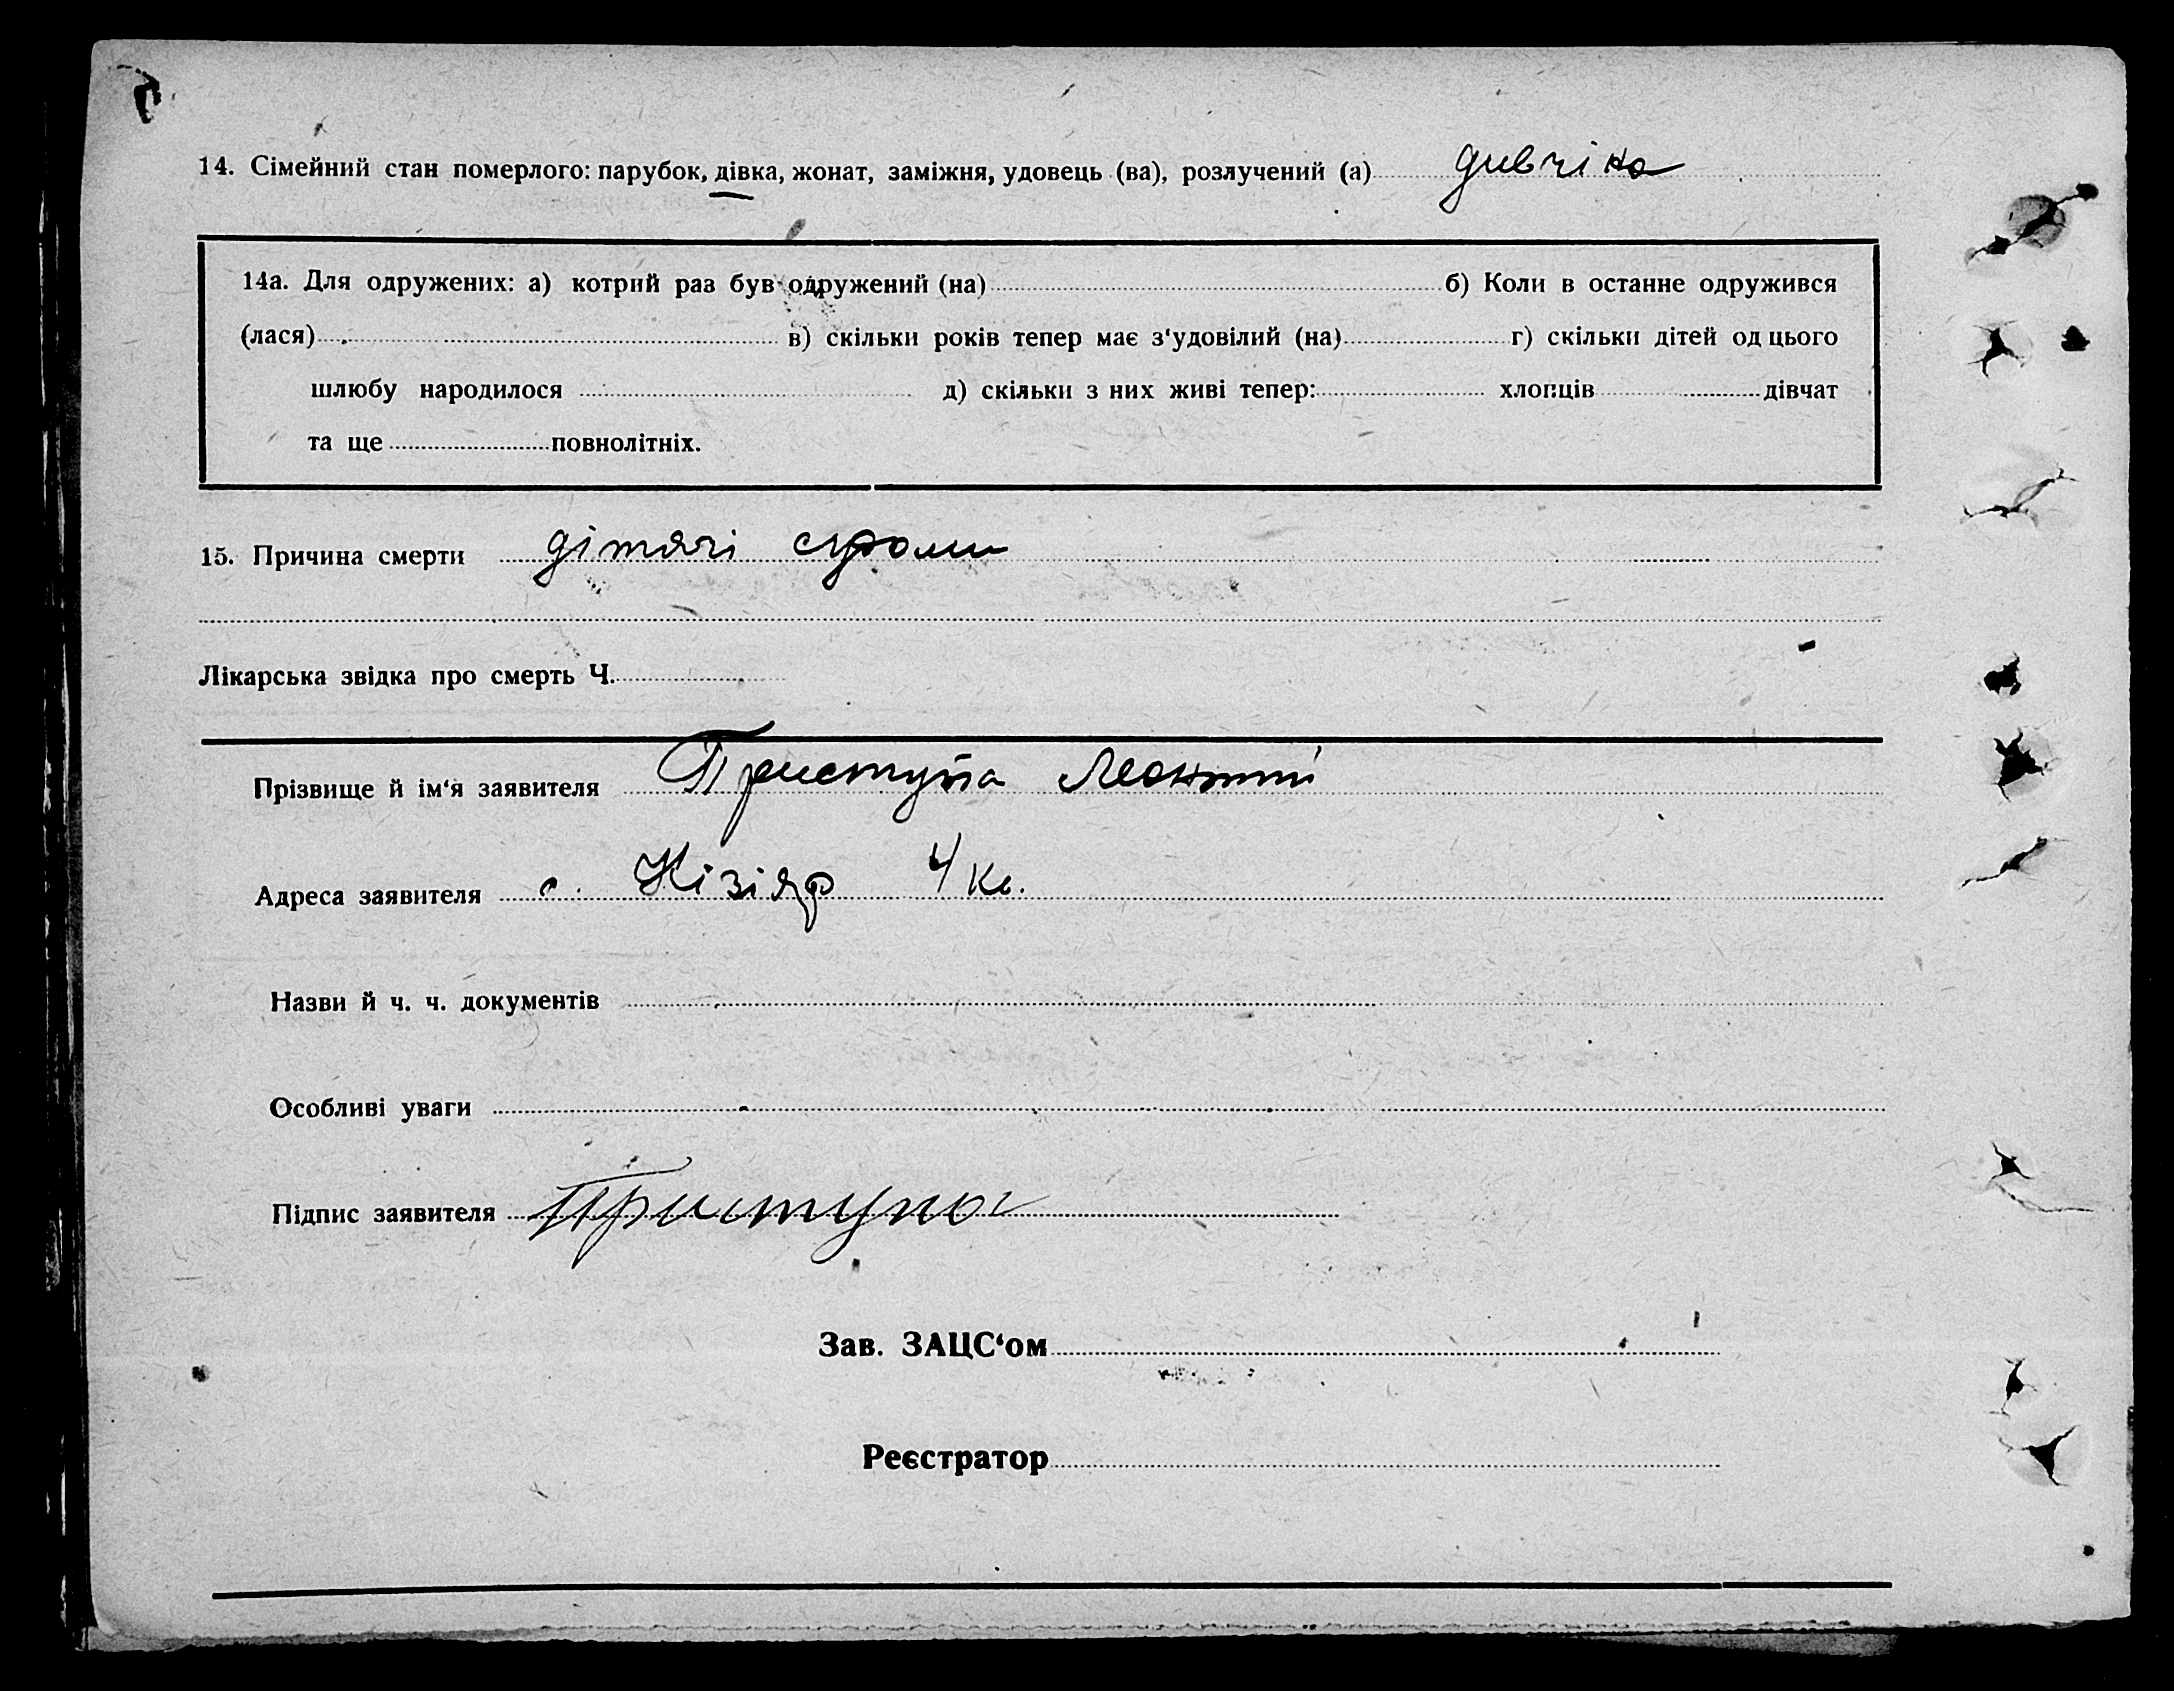 14. Сімейний стан померлого: парубок, дівка, жонат, заміжня, удовець (ва), розлучений (а) дивчіна
14а. Для одружених: а) котрий раз був одружений (на) б) Коли в останне одружився
(лася) в) скільки років тепер має з‘удовілий (на) г) скільки дітей од цього
шлюбу народилося д) скільки з них живі тепер: хлопців дівчат
та ще повнолітніх.
15. Причина смерти дітячі
Лікарська звідка про смерть Ч.
Прізвище й ім‘я заявителя Приступа Леонтій
Адреса заявителя с. Кізіяр 4 кв.
Назви й ч. ч. документів
Особливі уваги
Підпис заявителя Приступа
Зав. ЗАЦС‘ом
Реєстратор